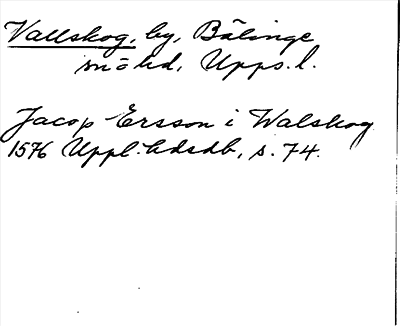 Vallskog, by, Bälinge
sn o hd, Upps. l.
Jacop Ersson i Walskog
1576 Uppl. hdsdb, s. 74.